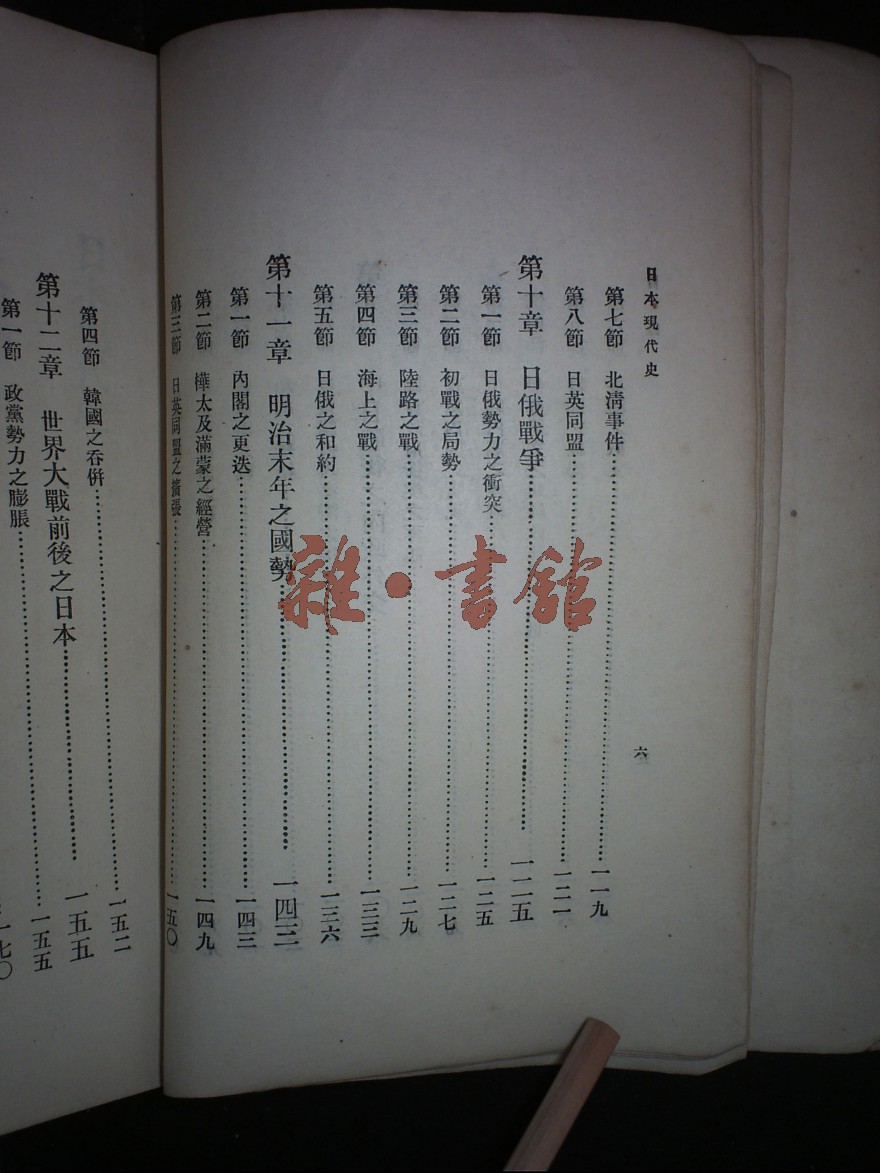 日本現代史
六
第七節 北淸事件……一一九
第八節 日英同盟……一二一
第十章 日俄戰爭……一二五
第一節 日俄勢力之衝突……一二五
第二節 初戰之局勢……一二七
第三節 陸路之戰……一二九
第四節 海上之戰……一三三
第五節 日俄之和約……一三六
第十一章 明治末年之國勢……一四三
第一節 內閣之更迭……一四三
第二節 樺太及滿蒙之經營……一四九
第三節 日英同盟之擴張……一五〇
第四節 韓國之吞併……一五二
第十二章 世界大戰前後之日本……一五五
第一節 政黨勢力之膨脹……一五五
一七〇
雜·書館